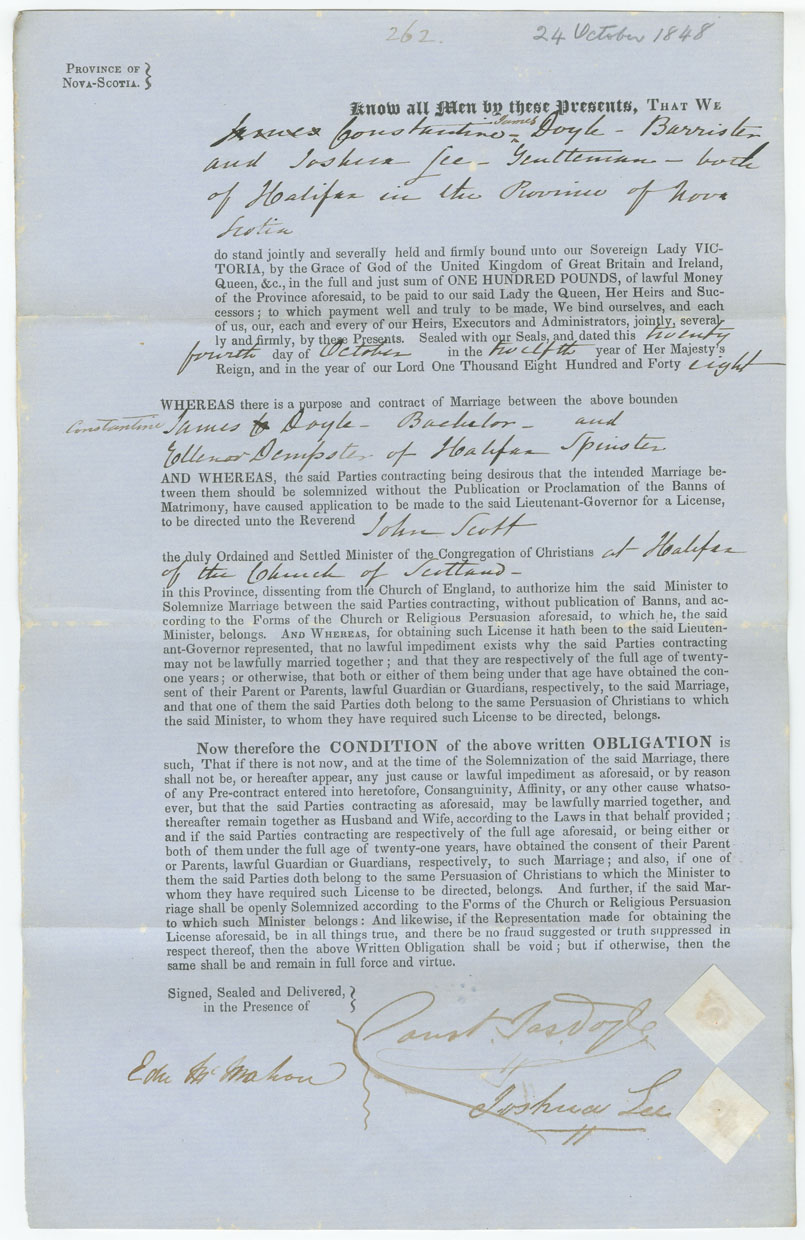 262.
24 October 1848
PROVINCE OF
NOVA-SCOTIA.
Know all Men by these Presents, THAT WE
James Constantine James Doyle - Barrister
and Joshua Lee - Gentleman - both
of Halifax in the Province of Nova
Scotia
do stand jointly and severally held and firmly bound unto our Sovereign Lady VIC-
TORIA, by the Grace of God of the United Kingdom of Great Britain and Ireland,
Queen, &c., in the full and just sum of ONE HUNDRED POUNDS, of lawful Money
of the Province aforesaid, to be paid to our said Lady the Queen, Her Heirs and Suc-
cessors; to which payment well and truly to be made, We bind ourselves, and each
of us, our, each and every of our Heirs, Executors and Administrators, jointly, several-
ly and firmly, by these Presents. Sealed with our Seals, and dated this twenty
fourth day of October in the twelfth year of Her Majesty's
Reign, and in the year of our Lord One Thousand Eight Hundred and Forty eight
WHEREAS there is a purpose and contract of Marriage between the above bounden
Constantine James Doyle - Bachelor - and
Ellenor Dempster of Halifax Spinster
AND WHEREAS, the said Parties contracting being desirous that the intended Marriage be-
tween them should be solemnized without the Publication or Proclamation of the Banns of
Matrimony, have caused application to be made to the said Lieutenant-Governor for a License,
to be directed unto the Reverend John Scott
the duly Ordained and Settled Minister of the Congregation of Christians at Halifax
of the Church of Scotland -
in this Province, dissenting from the Church of England, to authorize him the said Minister to
Solemnize Marriage between the said Parties contracting, without publication of Banns, and ac-
cording to the Forms of the Church or Religious Persuasion aforesaid, to which he, the said
Minister, belongs. AND WHEREAS, for obtaining such License it hath been to the said Lieuten-
ant-Governor represented, that no lawful impediment exists why the said Parties contracting
may not be lawfully married together; and that they are respectively of the full age of twenty-
one years; or otherwise, that both or either of them being under that age have obtained the con-
sent of their Parent or Parents, lawful Guardian or Guardians, respectively, to the said Marriage,
and that one of them the said Parties doth belong to the same Persuasion of Christians to which
the said Minister, to whom they have required such License to be directed, belongs.
Now therefore the CONDITION of the above written OBLIGATION is
such, That if there is not now, and at the time of the Solemnization of the said Marriage, there
shall not be, or hereafter appear, any just cause or lawful impediment as aforesaid, or by reason
of any Pre-contract entered into heretofore, Consanguinity, Affinity, or any other cause whatso-
ever, but that the said Parties contracting as aforesaid, may be lawfully married together, and
thereafter remain together as Husband and Wife, according to the Laws in that behalf provided;
and if the said Parties contracting are respectively of the full age aforesaid, or being either or
both of them under the full age of twenty-one years, have obtained the consent of their Parent
or Parents, lawful Guardian or Guardians, respectively, to such Marriage; and also, if one of
them the said Parties doth belong to the same Persuasion of Christians to which the Minister to
whom they have required such License to be directed, belongs. And further, if the said Mar-
riage shall be openly Solemnized according to the Forms of the Church or Religious Persuasion
to which such Minister belongs: And likewise, if the Representation made for obtaining the
License aforesaid, be in all things true, and there be no fraud suggested or truth suppressed in
respect thereof, then the above Written Obligation shall be void; but if otherwise, then the
same shall be and remain in full force and virtue.
Signed, Sealed and Delivered,
in the Presence of
Const. Jas. Doyle
Edw McMahon
Joshua Lee